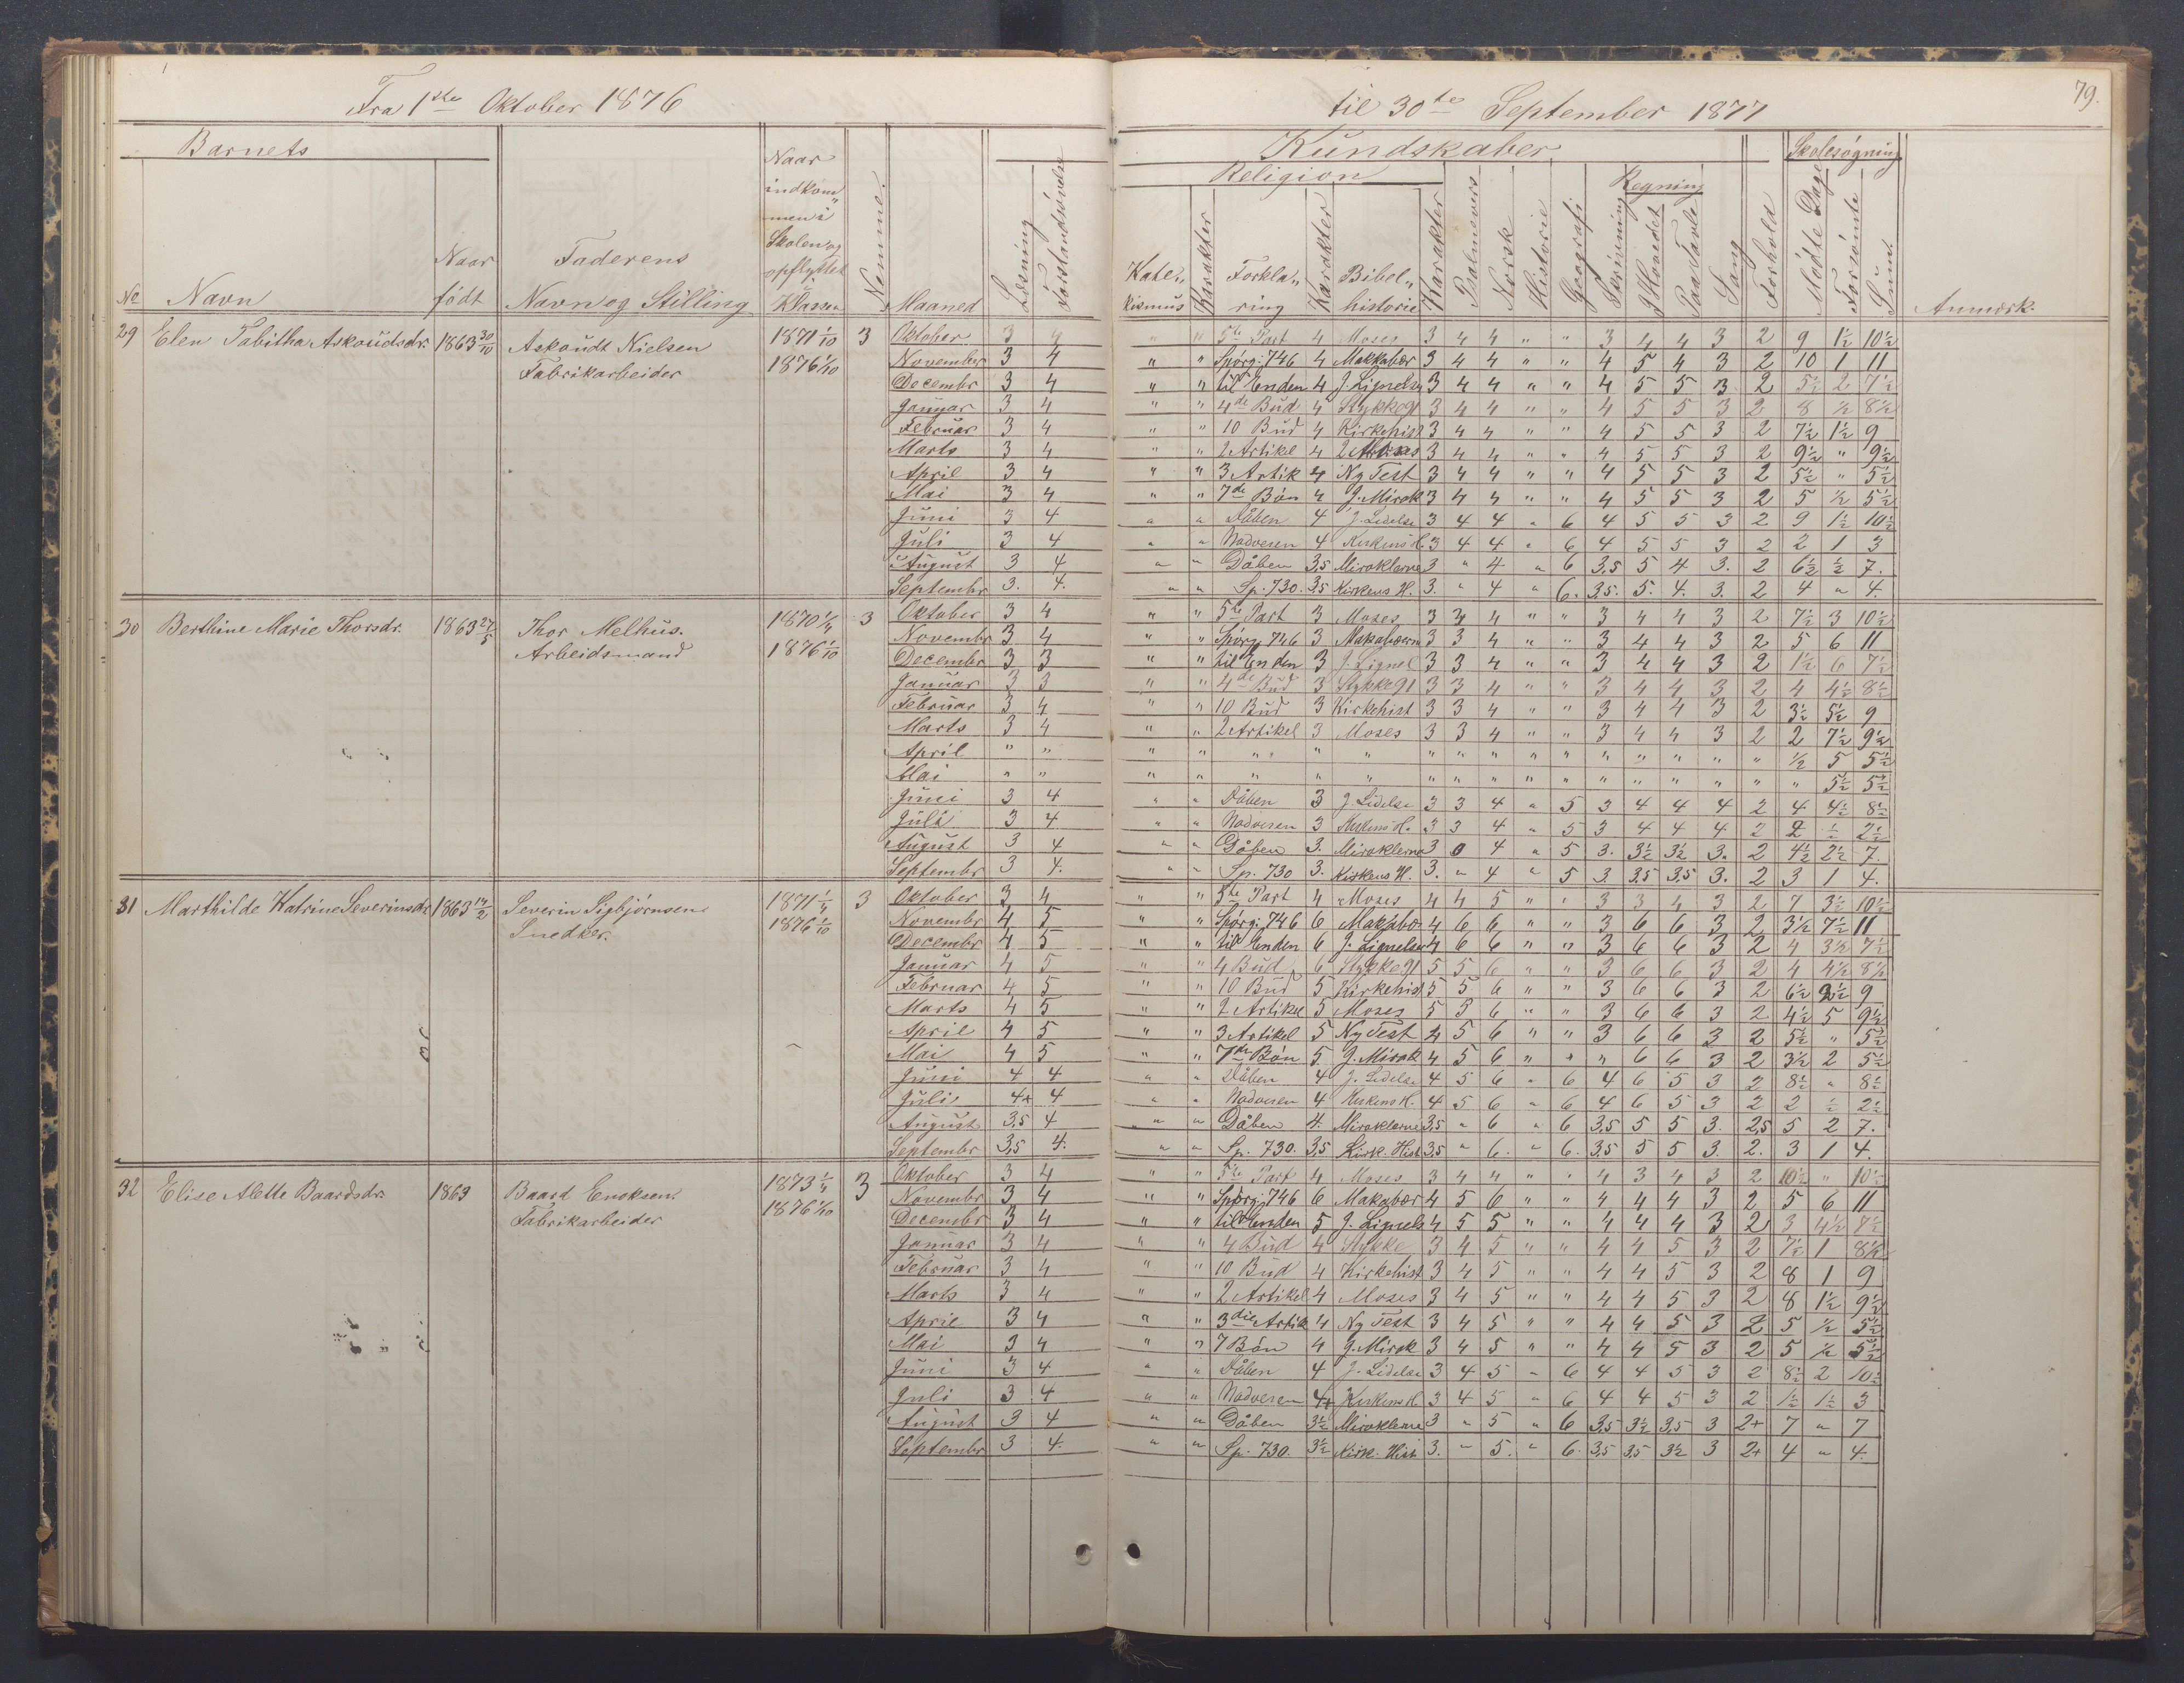 Fra 1ste Oktober 1876
til 30te September 1877
79.
Barnets
Kundskaber
Skolesøgning
Religion
Regning
No Navn
Naar født
Faderens Navn og Stilling
Naar indkommen i Skolen og opflyttet Klassen
Nemme.
Maaned
Læsning
Forstandsøvelse
Katekismus
Karakter
Forklaring
Karakter
Bibelhistorie
Karakter
Psalmevers
Norsk
Historie
Geografi
Skrivning
I Hovedet
Paa Tavle
Sang
Forhold
Mødte Dage
Forsømte
Sum
Anmærk.
29 Elen Tabitha Askoüdsdr. 1863 30/10 Askoüdt Nielsen Fabrikarbeider 1871 1/10 1876 1/10 3
Oktober 3 4 " " 5te Part 4 Moses 3 4 4 " " 3 4 4 3 2 9 1½ 10½
November 3 4 " " Spørg. 746 4 Makkabær 3 4 4 " " 4 5 4 3 2 10 1 11
Decembr 3 4 " " til Enden 4 J. Lignelse 3 4 4 " " 4 5 5 3 2 5½ 2 7½
Januar 3 4 " " 4de Bud 4 Stykke 91 3 4 4 " " 4 5 5 3 2 8 ½ 8½
Februar 3 4 " " 10 Bud 4 Kirkehist 3 4 4 " " 4 5 5 3 2 7½ 1½ 9
Marts 3 4 " " 2 Artikel 4 Moses 3 4 4 " " 4 5 5 3 2 9½ " 9½
April 3 4 " " 3 Artik 4 Ny Test 3 4 4 " " 4 5 5 3 2 5½ " 5½
Mai 3 4 " " 7de Bøn 4 J. Mirak 3 4 4 " " 4 5 5 3 2 5 ½ 5½
Juni 3 4 " " Dåben 4 J. Lidelse 3 4 4 " 6 4 5 5 3 2 9 1½ 10½
Juli 3 4 " " Nadveren 4 Kirkens H. 3 4 4 " 6 4 5 5 3 2 2 1 3
August 3 4 " " Dåben 3,5 Miraklerne 3 " 4 " 6 3,5 5 4 3. 2 6½ ½ 7.
Septembr 3. 4. " " Sp. 730. 3,5 Kirkens H. 3. " 4 " 6. 3,5. 5. 4. 3. 2 4 " 4.
30 Berthine Marie Thorsdr. 1863 27/5 Thor Melhus. Arbeidsmand 1870 1/9 1876 1/10 3
Oktober 3 4 " " 5te Part 3 Moses 3 3 4 " " 3 4 4 3 2 7½ 3 10½
Novembr 3 4 " " Spørg. 746 3 Makabærn 3 3 4 " " 3 4 4 3 2 5 6 11
Decembr 3 3 " " til Enden 3 J. Lignel 3 3 4 " " 3 4 4 3 2 1½ 6 7½
Januar 3 3 " " 4de Bud 3 Stykke 91 3 3 4 " " 3 4 4 3 2 4 4½ 8½
Februar 3 4 " " 10 Bud 3 Kirkehist 3 3 4 " " 3 4 4 3 2 3½ 5½ 9
Marts 3 4 " " 2 Artikel 3 Moses 3 3 4 " " 3 4 4 3 2 2 7½ 9½
April " " " " " " " " " " " " " " " " " " " ½ 5 5½
Mai " " " " " " " " " " " " " " " " " " " 5½ 5½
Juni 3 4 " " Dåben 3 J. Lidelse 3 3 4 " 5 3 4 4 4 2 4 4½ 8½
Juli 3 4 " " Nadveren 3 Kirkens H. 3 3 4 " 5 3 4 4 4 2 2 ½ 2½
August 3 4 " " Dåben 3. Miraklerne 3 0 4 " 5 3. 3½ 3½ 3. 2 4½ 2½ 7.
Septembr 3 4. " " Sp. 730 3. Kirkens H. 3. " 4 " 5 3. 3,5 3,5 3. 2 3 1 4.
31 Marthilde Katrine Severinsdr. 1863 14/2 Severin Sigbjørnsen Snedker. 1871 1/4 1876 1/10 3
Oktober 3 4 " " 5te Part 4 Moses 4 4 5 " " 3 3 4 3 2 7 3½ 10½
Novembr 4 5 " " Spørg. 746 6 Makabær 4 6 6 " " 3 6 6 3 2 3½ 7½ 11
Decembr 4 5 " " til Enden 6 J. Lignelser 4 6 6 " " 3 6 6 3 2 4 3½ 7½
Januar 4 5 " " 4 Bud 6 Stykke 91 5 5 6 " " 3 6 6 3 2 4 4½ 8½
Februar 4 5 " " 10 Bud 5 Kirkehist 5 5 6 " " 3 6 6 3 2 6½ 2½ 9
Marts 4 5 " " 2 Artikel 5 Moses 5 5 6 " " 3 6 6 3 2 4½ 5 9½
April 4 5 " " 3 Artikel 5 Ny Test 4 5 6 " " 3 6 6 3 2 5½ " 5½
Mai 4 5 " " 7de Bøn 5 J. Mirak 4 5 6 " " " 6 6 3 2 3½ 2 5½
Juni 4 4 " " Dåben 4 J. Lidelse 4 5 6 " 6 4 6 5 3 2 8½ " 8½
Juli 4+ 4 " " Nadveren 4 Kirkens H. 4 5 6 " 6 4 6 5 3 2 2 ½ 2½
August 3,5 4 " " Dåben 4. Miraklerne 3,5 " 6 " 6 3,5 5 5 3. 2,5 5 2 7.
Septembr 3,5 4. " " Sp. 730. 3,5 Kirk. Hist 3,5 " 6. " 6. 3,5 5 5 3. 2. 3 1 4.
32 Elise Alette Baardsdr. 1863 Baard Enoksen. Fabrikarbeider 1873 1/4 1876 1/10 3
Oktober 3 4 " " 5te Part 4 Moses 3 4 4 " " 4 3 4 3 2 10½ " 10½
Novembr 3 4 " " Spørg. 746 6 Makabær 4 5 6 " " 4 4 4 3 2 5 6 11
Decembr 3 4 " " til Enden 5 J. Lignels 4 5 5 " " 4 4 4 3 2 3 4½ 7½
Januar 3 4 " " 4 Bud 4 Stykke 3 4 5 " " 4 4 5 3 2 7½ 1 8½
Februar 3 4 " " 10 Bud 4 Kirkehist 3 4 5 " " 4 4 5 3 2 8 1 9
Marts 3 4 " " 2 Artikel 4 Moses 3 4 5 " " 4 4 5 3 2 8 1½ 9½
April 3 4 " " 3die Artik 4 Ny Test 3 4 5 " " 4 4 5 3 2 5 ½ 5½
Mai 3 4 " " 7 Bøn 4 J. Mirak 3 4 5 " " 4 4 5 3 2 5 ½ 5½
Juni 3 4 " " Dåben 4 J. Lidelse 3 4 5 " 6 4 4 5 3 2 8½ 2 10½
Juli 3 4 " " Nadveren 4+ Kirkens H 3 4 5 " 6 4 4 5 3 2 1½ 1½ 3
August 3 4 " " Dåben 3½ Miraklerne 3 " 5 " 6 3,5 3½ 3,5 3 2+ 7 " 7
Septembr 3 4. " " Sp. 730. 3½ Kirk. Hist 3. " 5. " 6. 3,5 3,5 3½ 3 2+ 4 " 4.